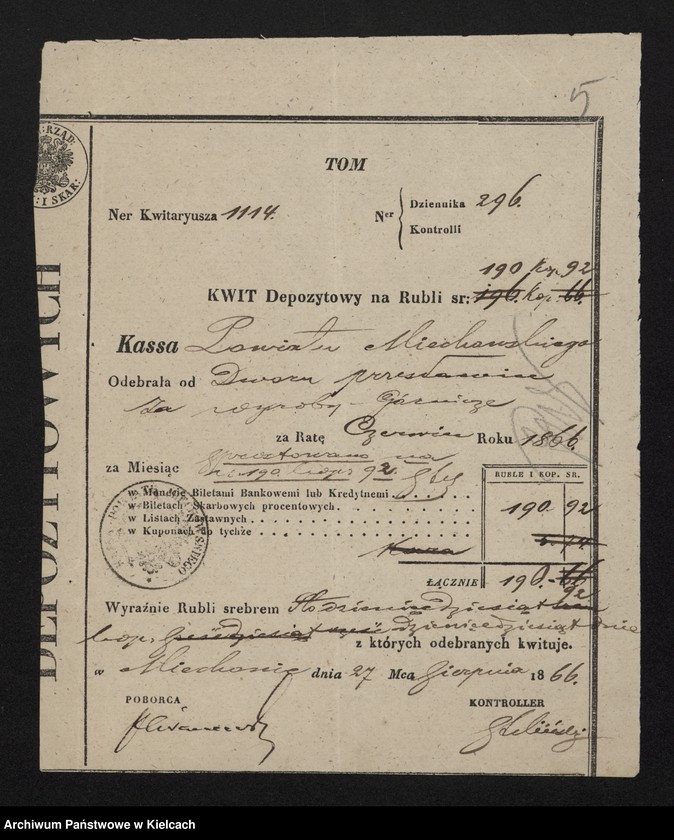 5
RZĄD:
: I SKAR:
DEPOZYTOWYCH
TOM
Ner Kwitaryusza 1114.
Ner Dziennika 296.
Kontrolli
190 Kop. 92
KWIT Depozytowy na Rubli sr: 196. Kop 66.
Kassa Powiatu Miechowskiego
Odebrała od Dworu
Za wyroby Górnicze
za Ratę Czerwiec Roku 1866
za Miesiąc
190 kop. 92
RUBLE I KOP. SR.
w Monecie Biletami Bankowemi lub Kredytnemi
w Biletach Skarbowych procentowych
w Listach Zastawnych
w Kuponach do tychże
190 92
Kara
ŁĄCZNIE 190. 66
92
Wyraźnie Rubli srebrem Sto
kop. dziewięćdziesiąt dwie
z których odebranych kwituje.
w Miechowie dnia 27 Mca Sierpnia 1866.
POBORCA
KONTROLLER
Archiwum Państwowe w Kielcach